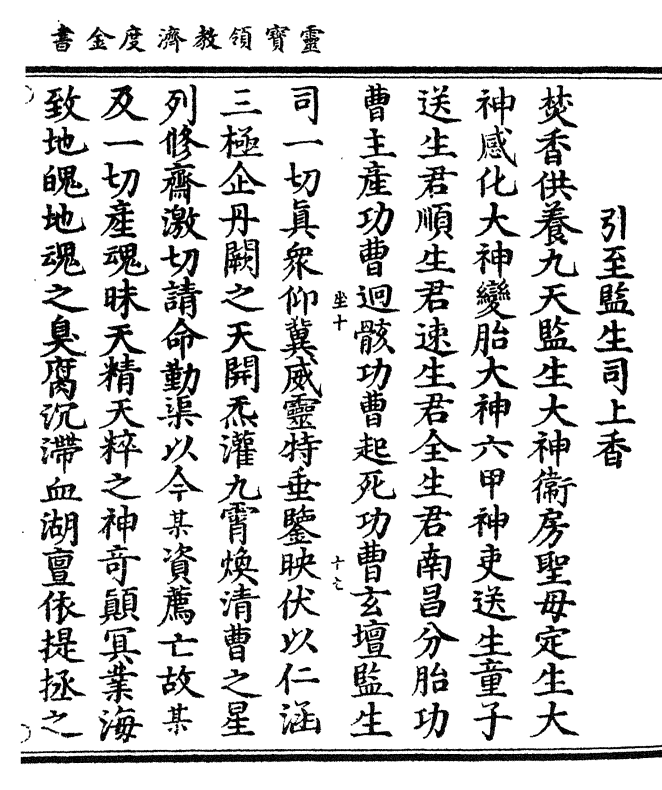 靈寶領教濟度金書
引至監生司上香
焚香供養九天監生大神衞房聖母定生大
神感化大神變胎大神六甲神吏送生童子
送生君順生君速生君全生君南昌分胎功
曹主產功曹迴骸功曹起死功曹玄壇監生
坐十
十七
司一切眞衆仰冀威靈特垂鑒映伏以仁涵
三極企丹闕之天開炁灌九霄煥清曹之星
列修齋激切請命勤渠以今某資薦亡故某
及一切產魂昧天精天粹之神奇顚冥業海
致地魄地魂之臭腐沉滯血湖亶依提拯之